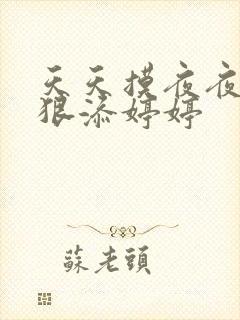 天天摸夜夜
狠添婷婷
蘇老頭